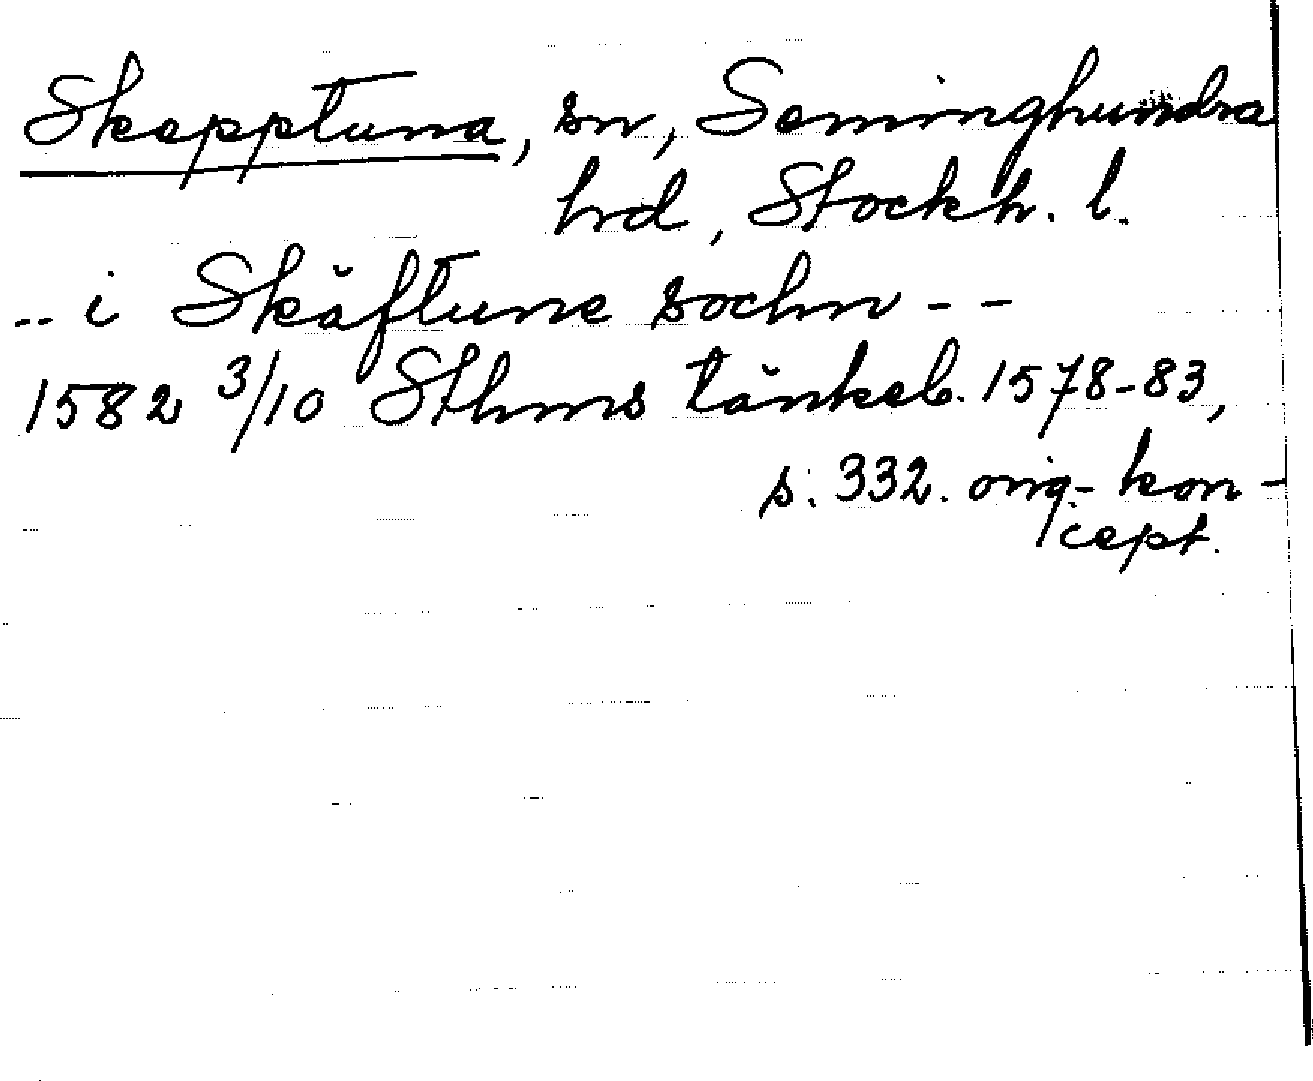 Skepptuna, sn, Seminghundra
hrd, Stockh. l.
-- i Skäftune sochn --
1582 3/10 Sthms tänkeb. 1578-83,
s. 332. orig.- kon-
cept.